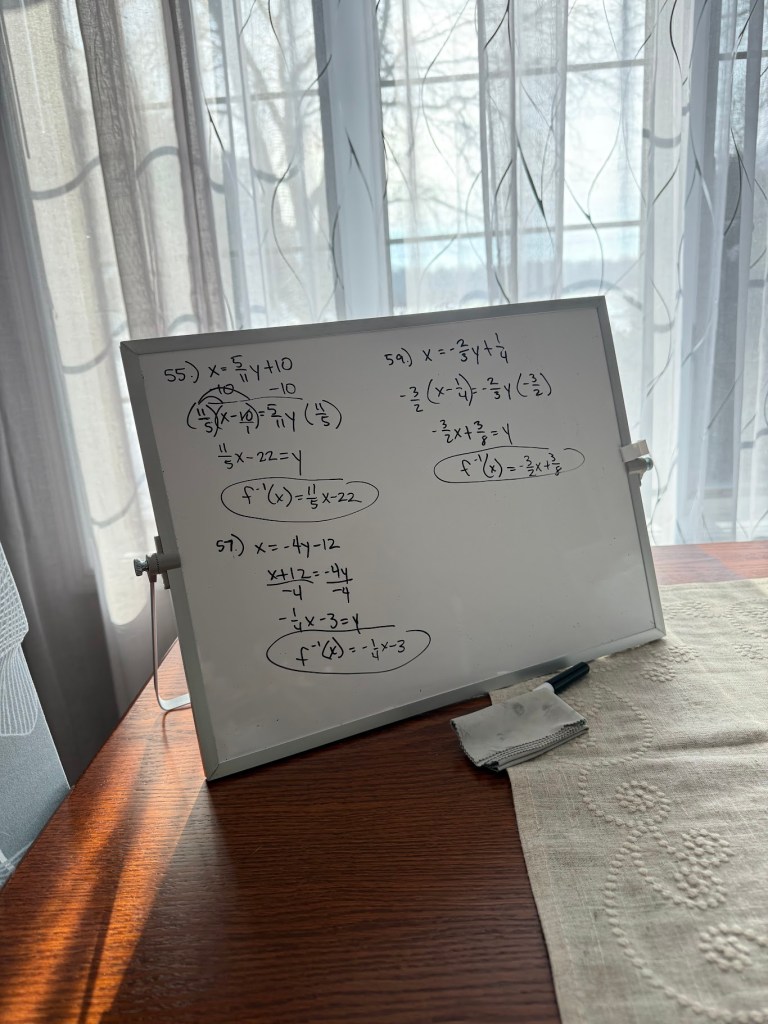 55.) x = 5/11 y + 10
-10 -10
(11/5)(x - 10/1) = 5/11 y (11/5)
11/5 x - 22 = y
f⁻¹(x) = 11/5 x - 22
57.) x = -4y - 12
x + 12 = -4y
-4 -4
-1/4 x - 3 = y
f⁻¹(x) = -1/4 x - 3
59.) x = -2/3 y + 1/4
-3/2 (x - 1/4) = -2/3 y (-3/2)
-3/2 x + 3/8 = y
f⁻¹(x) = -3/2 x + 3/8